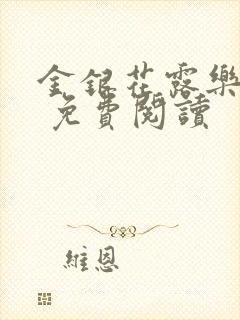 金銀花露樂
免費閱讀
維恩